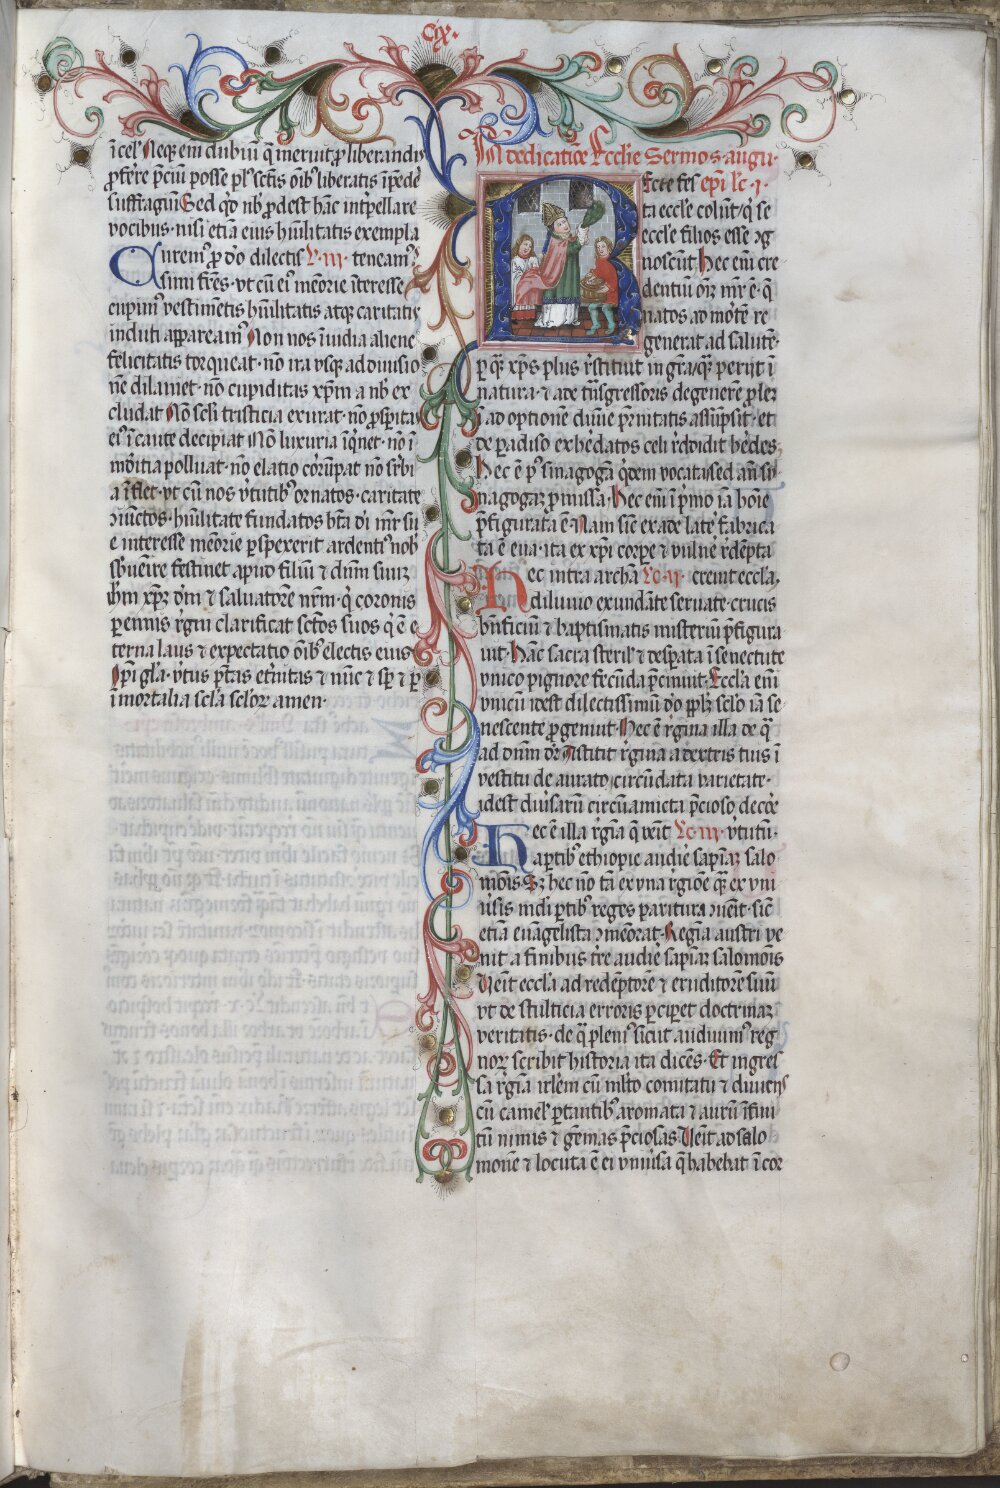 cix.
i cel' Neq; em dubiū q̄ meruit p̱ liberandis
p̱ferre p̄ciū posse pl' sctīs oīb' liberatis īpēde
suffragiū Sed q̄o nb̄ p̱dest hāc īterpellare
vocibus · nisi etiā eius hūilitatis exempla
Curem' p̱ do dilectis L · iii · teneam'
simi frēs · vt cū ei' mēorie īteresse
cupim' vestimētis hūilitatis atq; caritatis
induti appaream' Non nos īuidia aliene
felicitatis torqueat · nō ira vsq; ad diuisio
nē dilaniet · nō cupiditas xp̄m a nb̄ ex
cludat Nō seli tristicia exurat · nō p̱spitas
ei' īcaute decipiat Nō luxuria īq'net · nō ī
mūditia polluat · nō elatio corūpat nō srbi
a īflet · vt cū nos v'tutib' ornatos · caritate
iūctos · hūilitate fundatos bt̄a di mr̄ su
e interesse mēorie p̱spexerit ardenti' nob̄
sb'ueīre festinet apud filiū ⁊ dn̄m suū
ih̄m xp̄m dm̄ ⁊ saluatorē nr̄m · q̇ coronis
p̱ennis rḡni clarificat sctōs suos q̇ ē e
terna laus ⁊ expectatio oīb' electis eius
Ipi gl'a · v'tus p̱tas et'nitas ⁊ nūc ⁊ sp̄ ⁊ p̱
imortalia scl'a sclor̄ amen ·
In dedicatiōe Ecclie Sermo s · augu ·
Recte fes ep̄i lc̄ · i ·
ta eccl'e colūt / q̇ se
eccl'e filios esse 9g
noscūt Hec em̄ cre
dentiū oīm mr̄ ē · q̄
natos ad mōtē re
generat ad salutē ·
p̱ q̄ xp̄s plus r̄stituit in gr̄a / q̄ perijt ī
natura · ⁊ ade tn̄sgressoris degenerē p̱lem
ī adoptionē diuīe p̄nitatis assūpsit · et
de padiso exh'edatos celi r̄didit h'edes
Hec ē p' sinagogā q̇dem vocata / sed an̄ sy
nagogaꝫ p̱missa · Hec em̄ ī p̱mo iā hoīe
p̄figurata ē · Nam sīe ex ade lat'e fabrica
ta ē eua · ita ex xp̄i corpe ⁊ vuln'e r̄dēpta
Hec intra archā Lc · ii · creuit eccl'a ·
diluuio exundāte seruate · crucis
bn̄ficiū ⁊ baptismatis misteriū p̄figura
uit · Hāc sacra steril' ⁊ despata ī senectute
vnico pignore fecūda pcinuit · Eccl'a em̄
vnicū idest dilectissimū do ppl'm sclo iā se
nescente p̱genuit · Hec ē rḡina illa de q̄
ad dn̄m dr̄ Astitit rḡina a dexteris tuis ī
vestitu de aurato / circūdata varietate ·
idest diuīsarū circūamicta p̄cioso decōe
Hec ē illa rḡia q̄ veīt Lc · iii · v'tutū ·
a p̱tib' ethiopie audīe sapīaꝫ salo
mōis Sꝫ hec nō tā ex vna rḡiōe q̄ ex vni
u'sis mdi p̱tib' reges paritura 9uēit · sīc
etiā euāgelista 9mēorat · Regīa austri ve
nit a finibus tr̄e audīe sapīaꝫ salomōis
Ueīt eccl'a ad redēptorē ⁊ eruditorē suū
vt de stulticia erroris p̱ciperet doctrinaꝫ
veritatis · de q̄ pleni' sicut audiuim' reg
nor̄ scribit historia ita dicēs · Et ingres
sa rḡia irl'em cū ml'to comitatu ⁊ diuicijs
cū camel' p̱tantib' aromata ⁊ aurū īfini
tū nimis ⁊ gēmas p̄ciosas · Ueīt ad salo
monē ⁊ locuta ē ei vniu'sa q̄ habebat ī cor